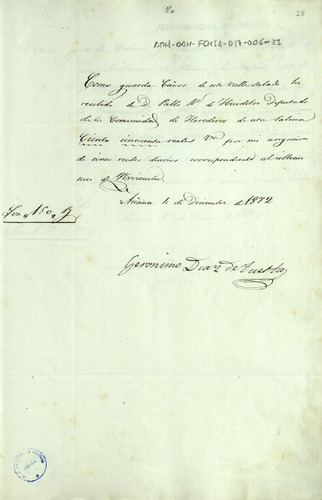 20
25
ATHA-DAH-FONSA-017-006-23
Como guarda Caños de este Valle salado he
recibido de D. Pablo Mª de Heredia Diputado
de la Comunidad de Herederos de esta Salina
Ciento cincuenta reales Vn por mi asignacion
de cinco reales diarios correspondiente al ultimo
mes de Noviembre
Añana 4 de Diciembre de 1872
Son 150 r
Geronimo Diaz de Tuesta